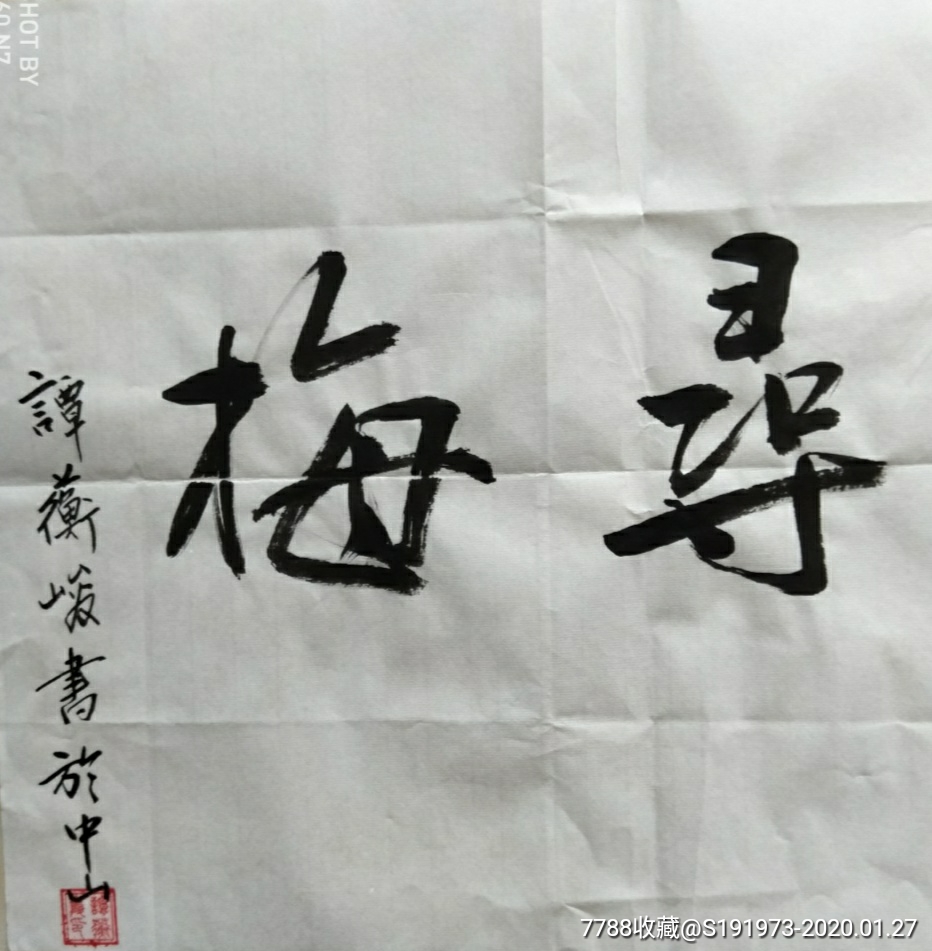 尋梅
譚蘅峻書於中山
HOT BY
7788收藏@S191973-2020.01.27